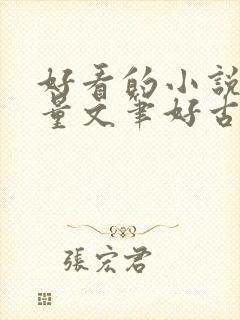 好看的小說
量文筆好古
張宏君